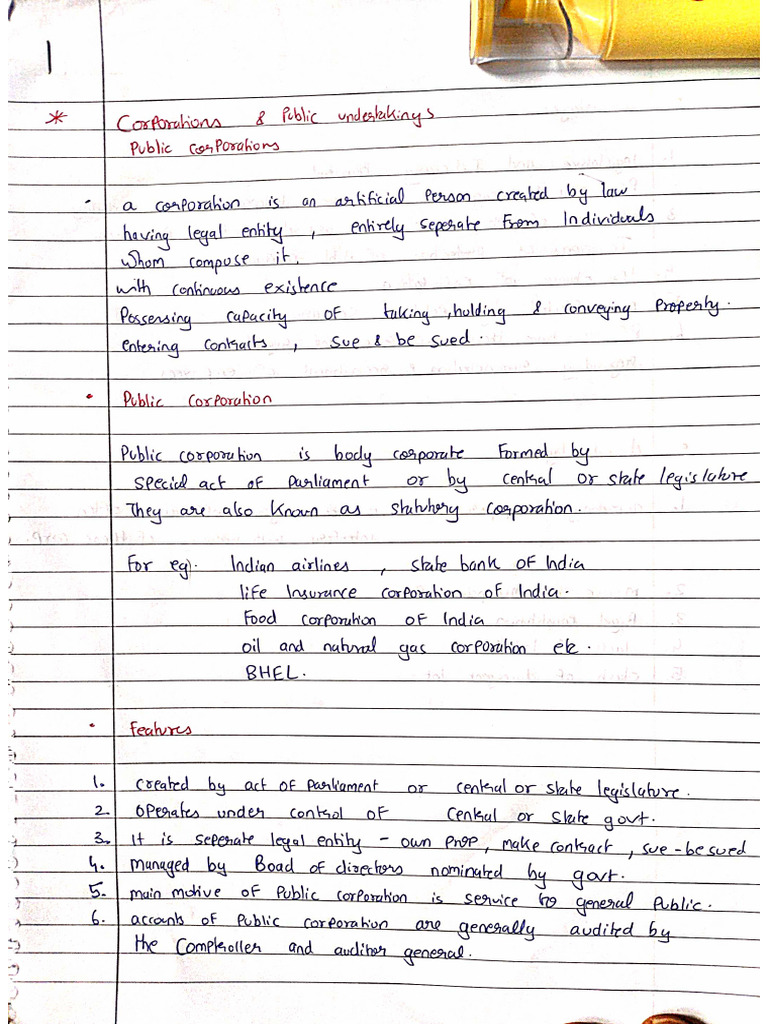 1
* Corporations & Public undertakings
Public corporations
- a corporation is an artificial Person created by law
having legal entity , entirely seperate from Individuals
Whom compose it,
with continuous existence
Possessing capacity of taking, holding & conveying Property.
entering contracts , sue & be sued.
• Public Corporation
Public corporation is body corporate formed by
special act of Parliament or by central or state legislature
They are also known as statutory corporation.
For eg). Indian airlines , state bank of India
life Insurance corporation of India.
Food corporation of India
oil and natural gas corporation etc.
BHEL.
• features
1. created by act of parliament or central or state legislature.
2. operates under control of central or state govt.
3. It is seperate legal entity - own prop, make contract, sue - be sued
4. managed by Boad of directors nominated by govt.
5. main motive of Public corporation is service to general Public.
6. accounts of Public corporation are generally audited by
the Comptroller and auditor general.